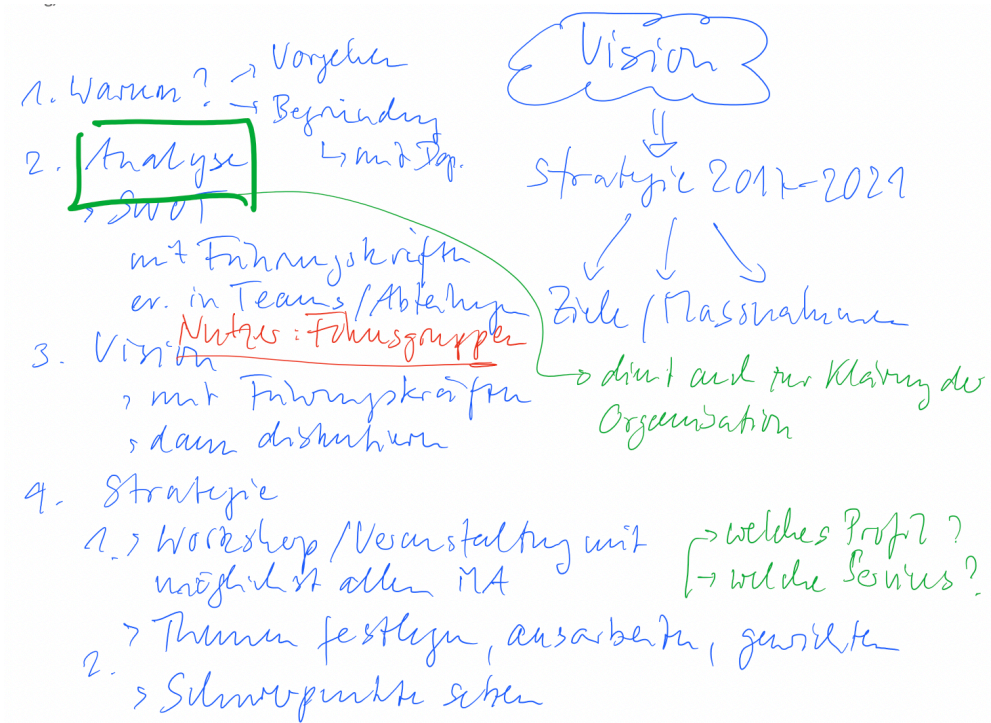 1. Warum? → Vorgehen
→ Begründung
↳ mit Dop.
2. Analyse
> SWOT
mit Führungskräften
ev. in Teams/Abteilungen
Nutzer: Fokusgruppen
3. Vision
> mit Führungskräften
> dann diskutieren
4. Strategie
1. > Workshop/Veranstaltung mit
möglichst allen MA
> Themen festlegen, ausarbeiten, gewichten
2.
> Schwerpunkte setzen
Vision
Strategie 2017-2021
Ziele/Massnahmen
→ dient auch zur Klärung der
Organisation
→ welches Profil?
→ welche Services?